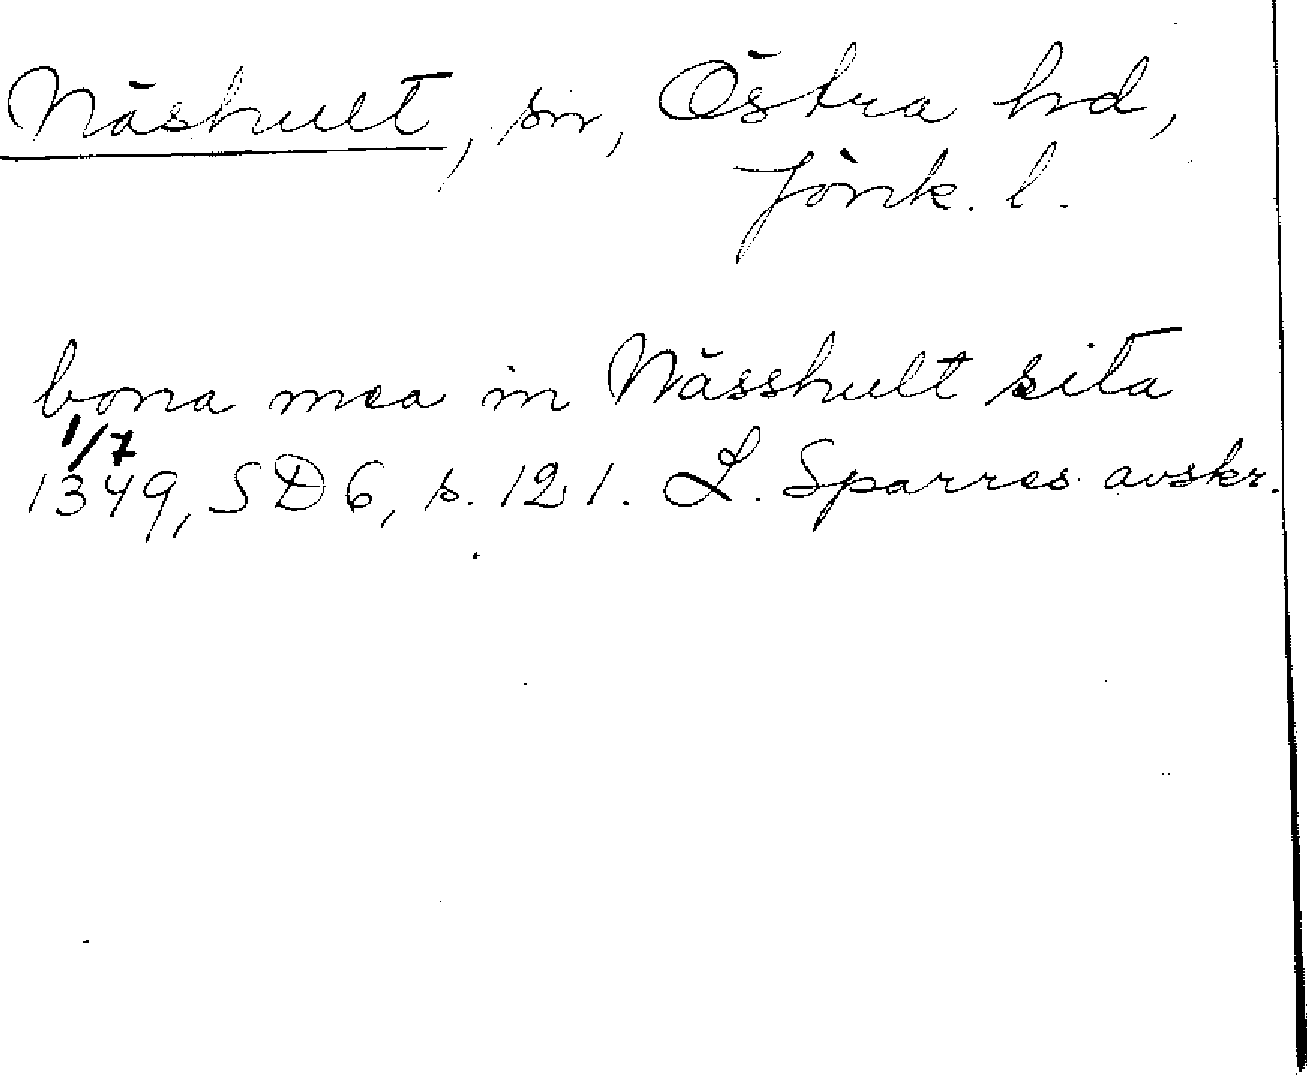 Näshult, sn, Östra hd,
Jönk. l.
bona mea in Nässhult sita
1/7
1349, SD 6, s. 121. L. Sparres avskr.